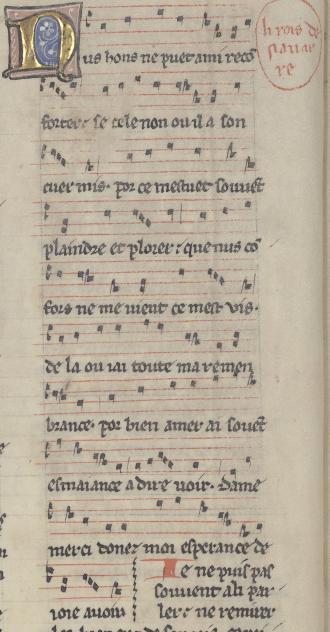 li rois de
nauar
re
Nus hons ne puet ami recō
forter. se cele non ou il a son
cuer mis. por ce mestuet souuēt
plaindre et plorer. que nus cō
fors ne me uient ce mest vis.
de la ou iai toute ma remen
brance. por bien amer ai souēt
esmaiance a dire uoir. Dame
merci donez moi esperance de
ioie auoir
Je ne puis pas
souuent a li par
ler. ne remirer